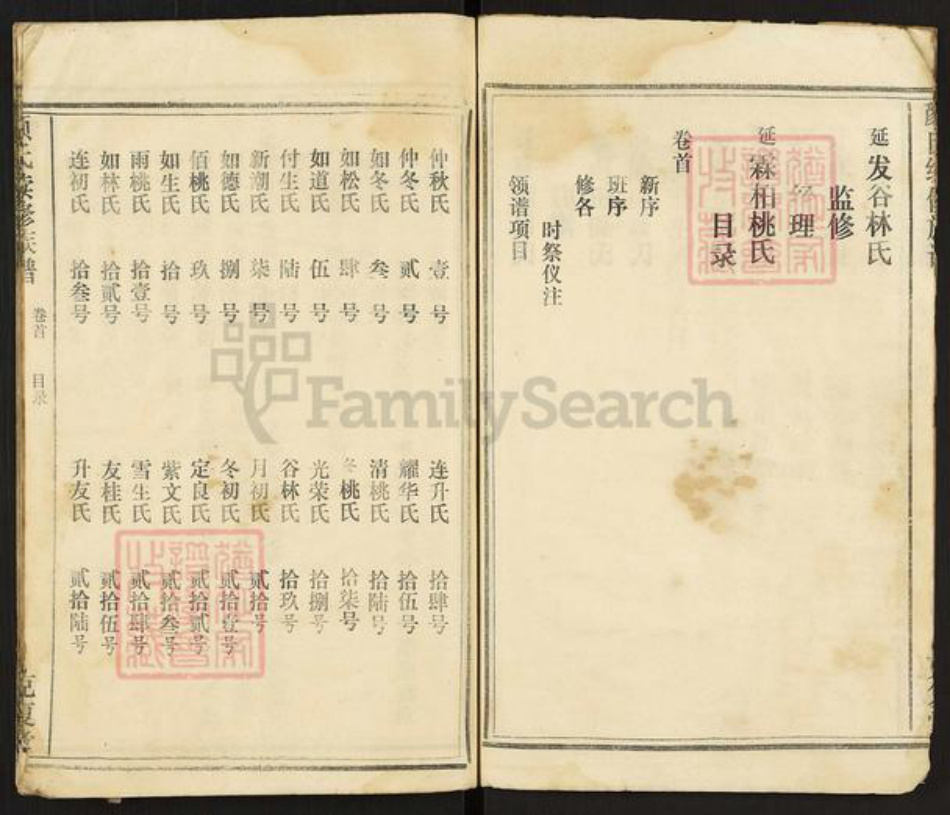 延发谷林氏
监修
理
延霖柏桃氏
目录
卷首
新序
班序
修各
时祭仪注
领谱项目
仲秋氏 壹号
仲冬氏 贰号
如冬氏 叁号
如松氏 肆号
如道氏 伍号
付生氏 陆号
新潮氏 柒号
如德氏 捌号
佰桃氏 玖号
如生氏 拾号
雨桃氏 拾壹号
如林氏 拾贰号
连初氏 拾叁号
连升氏 拾肆号
耀华氏 拾伍号
清桃氏 拾陆号
冬桃氏 拾柒号
光荣氏 拾捌号
谷林氏 拾玖号
月初氏 贰拾号
冬初氏 贰拾壹号
定良氏 贰拾贰号
紫文氏 贰拾叁号
雪生氏 贰拾肆号
友桂氏 贰拾伍号
升友氏 贰拾陆号
卷首 目录
FamilySearch